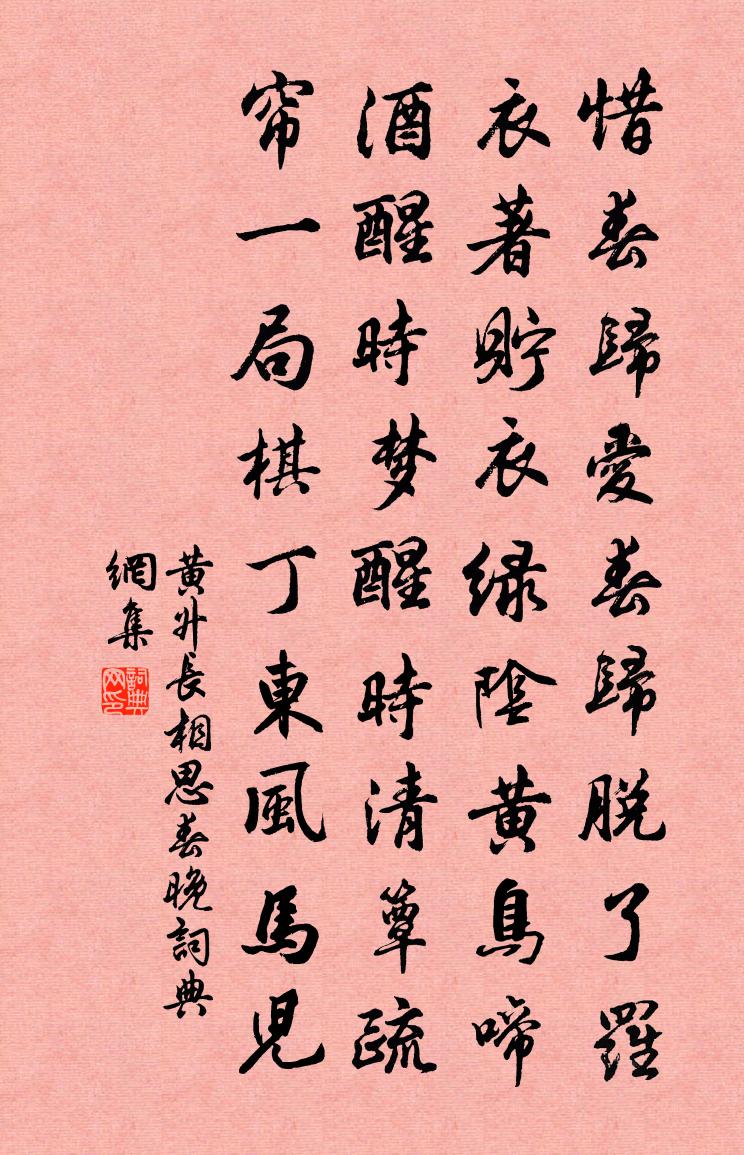 惜春歸愛春歸脫了羅
衣著貯衣綠陰黃鳥啼
酒醒時梦醒時清簟疏
帘一局棋丁東風馬兒
黃升長相思春晚詞典
網集
詞典
网印